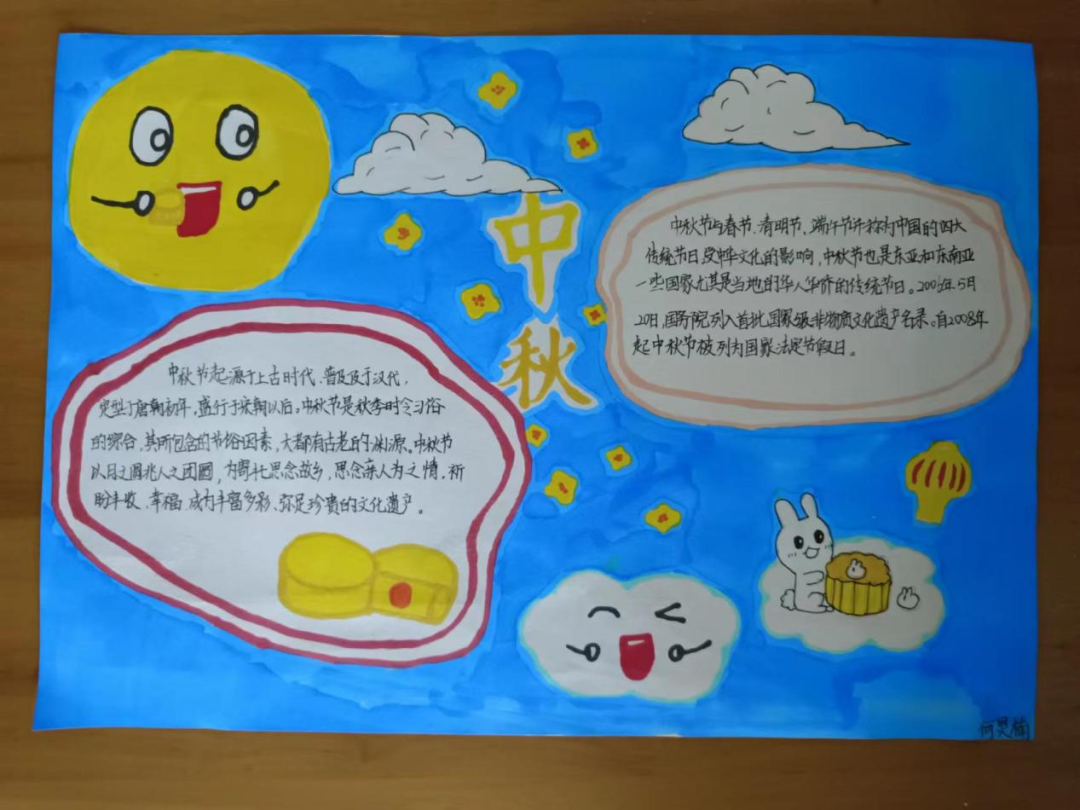 中秋
中秋节与春节、清明节、端午节并称为中国的四大
传统节日受中华文化的影响,中秋节也是东亚和东南亚
一些国家尤其是当地的华人华侨的传统节日。2006年5月
20日,国务院列入首批国家级非物质文化遗产名录。自2008年
起中秋节被列为国家法定节假日。
中秋节起源于上古时代、普及于汉代,
定型于唐朝初年,盛行于宋朝以后。中秋节是秋季时令习俗
的综合,其所包含的节俗因素,大都有古老的渊源。中秋节
以月之圆兆人之团圆,为寄托思念故乡,思念亲人为之情,祈
盼丰收、幸福,成为丰富多彩、弥足珍贵的文化遗产。
何